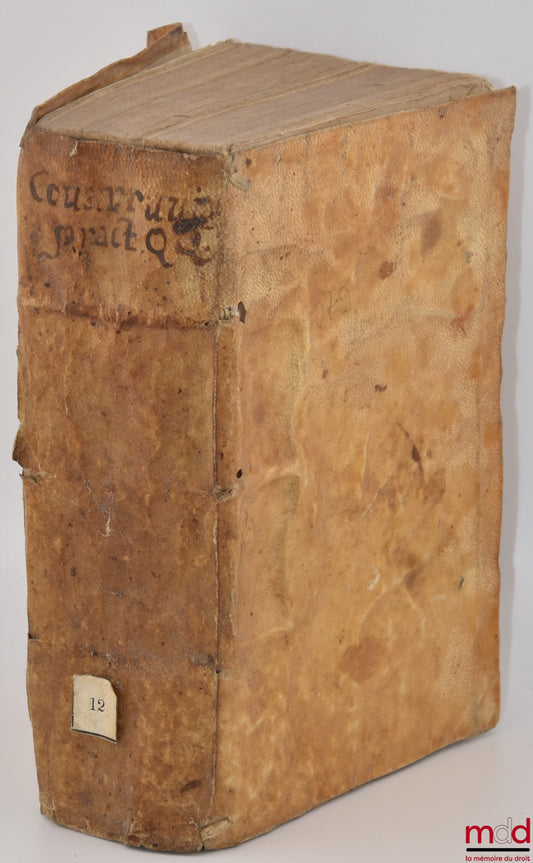 Couarruuias
pract. QQ
12
mdd
la mémoire du droit